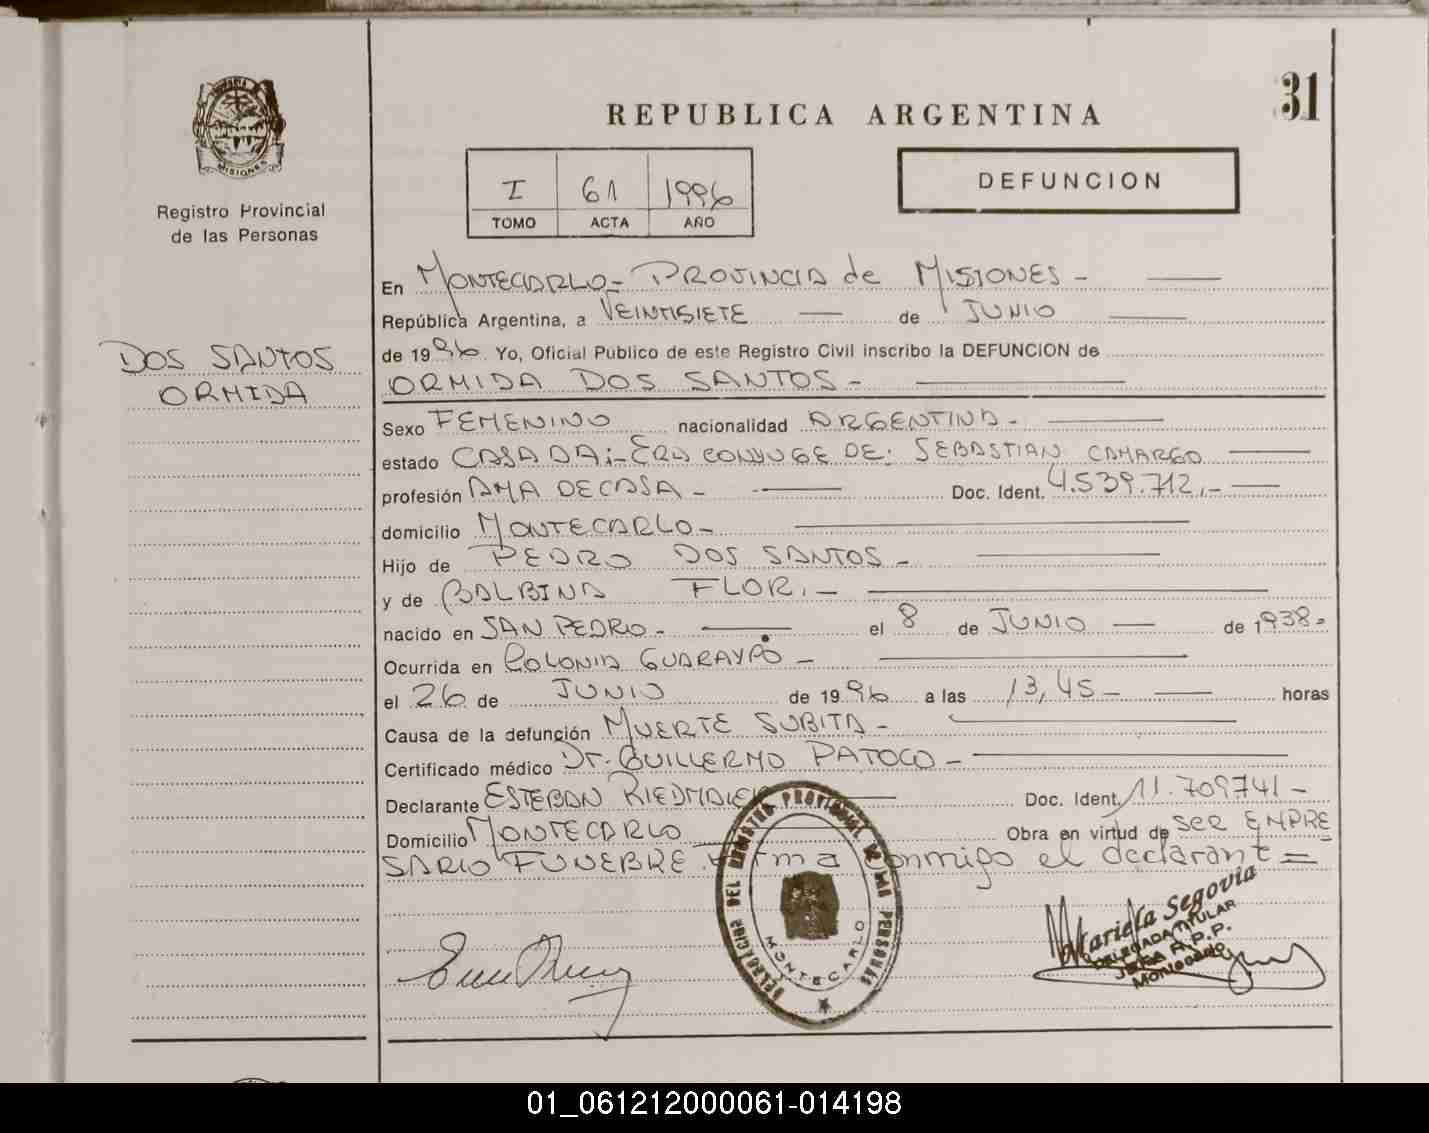 31
REPUBLICA ARGENTINA
MISIONES
Registro Provincial
de las Personas
I 61 1996
TOMO ACTA AÑO
DEFUNCION
En MONTECARLO - PROVINCIA de MISIONES -
República Argentina, a VEINTISIETE de JUNIO
de 1996. Yo, Oficial Público de este Registro Civil inscribo la DEFUNCION de
ORMIDA DOS SANTOS -
DOS SANTOS
ORMIDA
Sexo FEMENINO nacionalidad ARGENTINA -
estado CASADA;- Era CONYUGE DE: SEBASTIAN CAMARGO
profesión AMA DE CASA - Doc. Ident. 4.539.712.-
domicilio MONTECARLO -
Hijo de PEDRO DOS SANTOS -
y de BALBINA FLOR. -
nacido en SAN PEDRO - el 8 de JUNIO de 1938-
Ocurrida en COLONIA GUARAYPO -
el 26 de JUNIO de 1996 a las 13,45 - horas
Causa de la defunción MUERTE SUBITA -
Certificado médico Dr. GUILLERMO PATOCO -
Declarante ESTEBAN Doc. Ident. 11.709741 -
Domicilio MONTECARLO Obra en virtud de ser EMPRE
SARIO FUNEBRE. Firma conmigo el declarante =
DELEGACION DEL REGISTRO PROVINCIAL DE LAS PERSONAS
MONTECARLO
Mariela Segovia
DELEGADA TITULAR
JEFA R.P.P.
Montecarlo
01_061212000061-014198